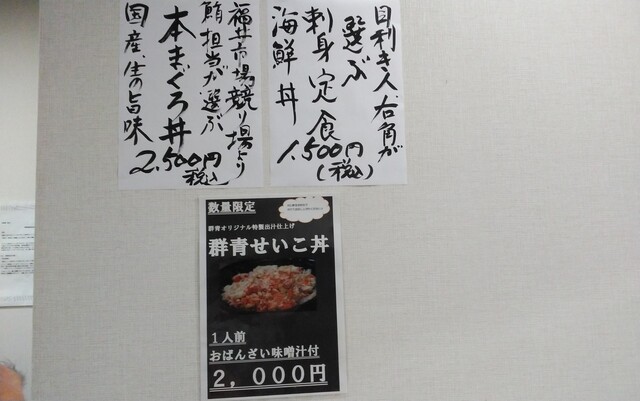 目利き人、右角が
選ぶ
刺身定食
海鮮丼
1.500円
(税込)
福井市場競り場より
鮪担当が選ぶ
本まぐろ丼
国産、生の旨味
2.500円
税込
数量限定
群青オリジナル特製出汁仕上げ
群青せいこ丼
1人前
おばんざい味噌汁付
2,000円